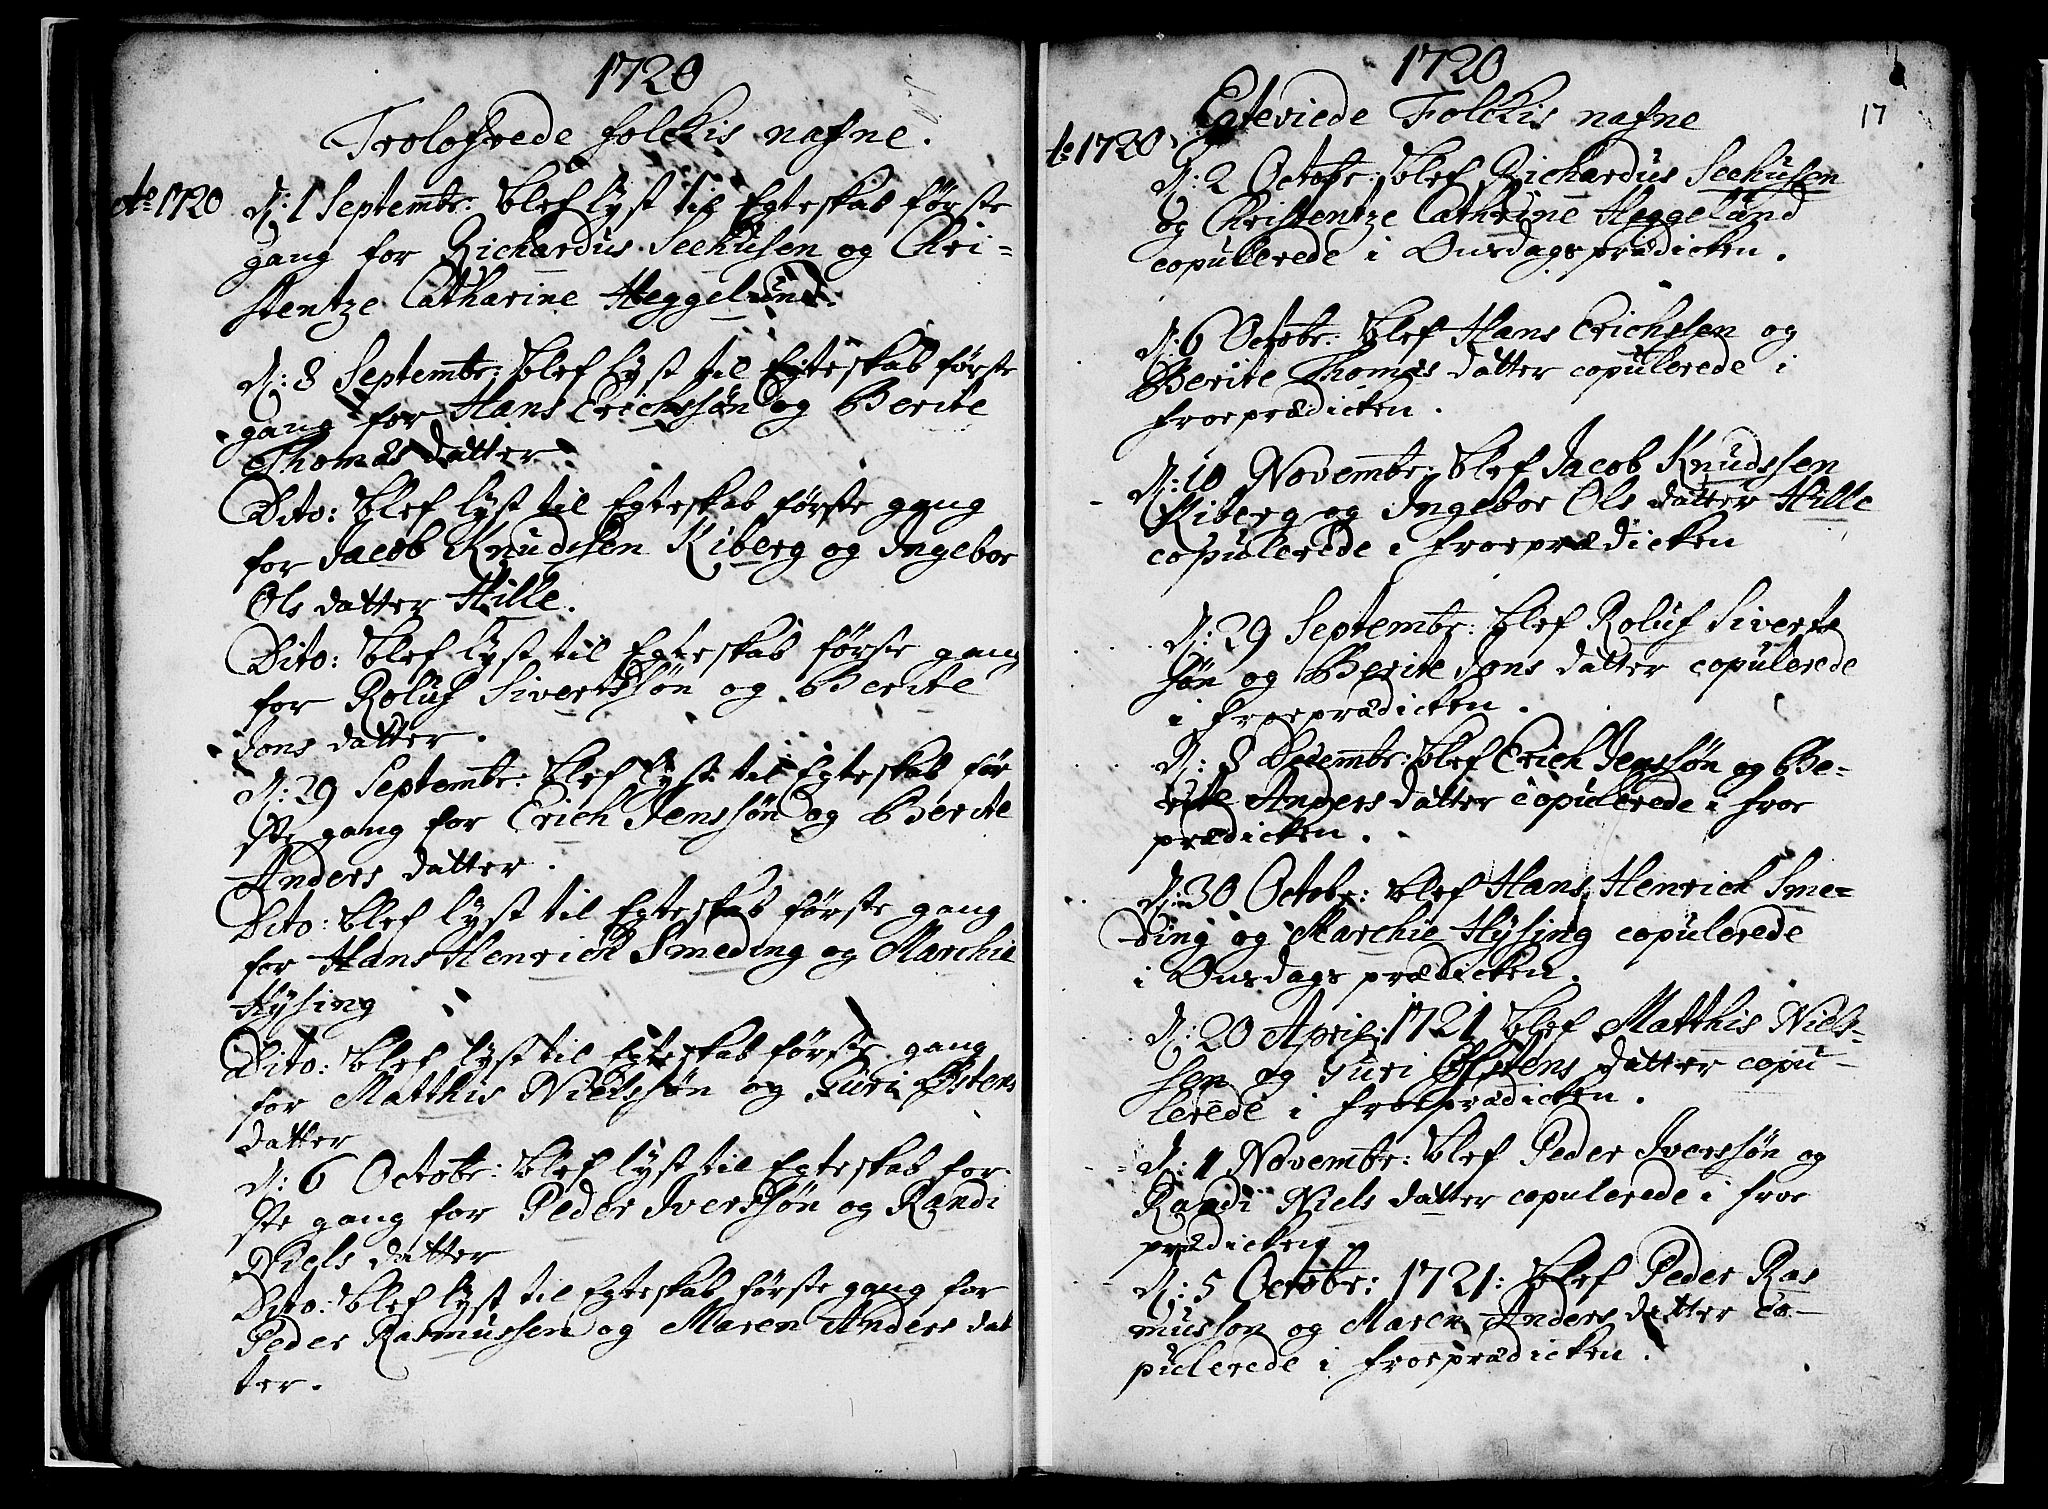 1720
Trolofvede folckis nafne.
Ao 1720 D: 1 Septembr: blef lyst til Egteskab første
gang for Richardus Seehusen og Chri-
stentze Catharine Heggelund.
D: 8 Septembr: blef lyst til Egteskab første
gang for Hans Erichssøn og Berite
Thomas datter.
Dito: blef lyst til Egteskab første gang
for Jacob Knudssen Kiberg og Ingebor
Ols datter Hille.
Dito: blef lyst til Egteskab første gang
for Roluf Sivertssøn og Berite
Jons datter.
D: 29 Septembr: blef lyst til Egteskab før
ste gang for Erich Jenssøn og Berite
Anders datter.
Dito: blef lyst til Egteskab første gang
for Hans Henrich Smeding og Marchie
Hysing
Dito: blef lyst til Egteskab første gang
for Matthis Nielssøn og Guri Østens
datter
D: 6 Octobr: blef lyst til Egteskab for
ste gang for Peder Iverssøn og Randi
Niels datter
Dito: blef lyst til Egteskab første gang for
Peder Rasmussen og Maren Anders dat
ter.
1720
17
Egteviede Folckis nafne
Ao 1720
D: 2 Octobr: blef Richardus Seehusen
og Christentze Cathrine Heggelund
copulerede i Onsdagsprædicken.
D: 6 Octobr: blef Hans Erichssen og
Berite Thomas datter copulerede i
froeprædicken.
D: 10 Novembr: blef Jacob Knudssen
Kiberg og Ingebor Ols datter Hille
copulerede i froeprædicken
D: 29 Septembr: blef Roluf Siverts
søn og Berite Jons datter copulerede
i froeprædicken.
D: 8 Decembr: blef Erich Jenssøn og Be-
rite Anders datter copulerede i froe
prædicken.
D: 30 Octobr: blef Hans Henrich Sme-
ding og Marchie Hysing copulerede
i Onsdags prædicken.
D: 20 April: 1721 blef Matthis Niels-
sen og Guri Østens datter copu-
lerede i froeprædicken.
D: 1 Novembr: blef Peder Iverssøn og
Randi Niels datter copulerede i froe
prædicken
D: 5 Octobr: 1721: blef Peder Ras
musson og Maren Anders datter co-
pulerede i froeprædicken.